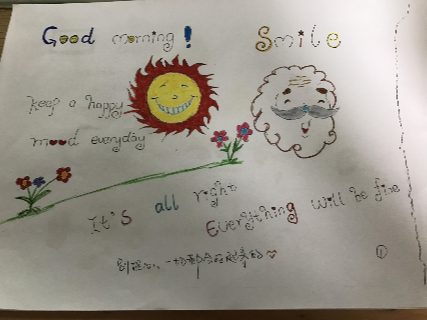 Good morning!
Smile
keep a happy
mood everyday
It's all right
Everything will be fine
别担心,一切都会好起来的
①